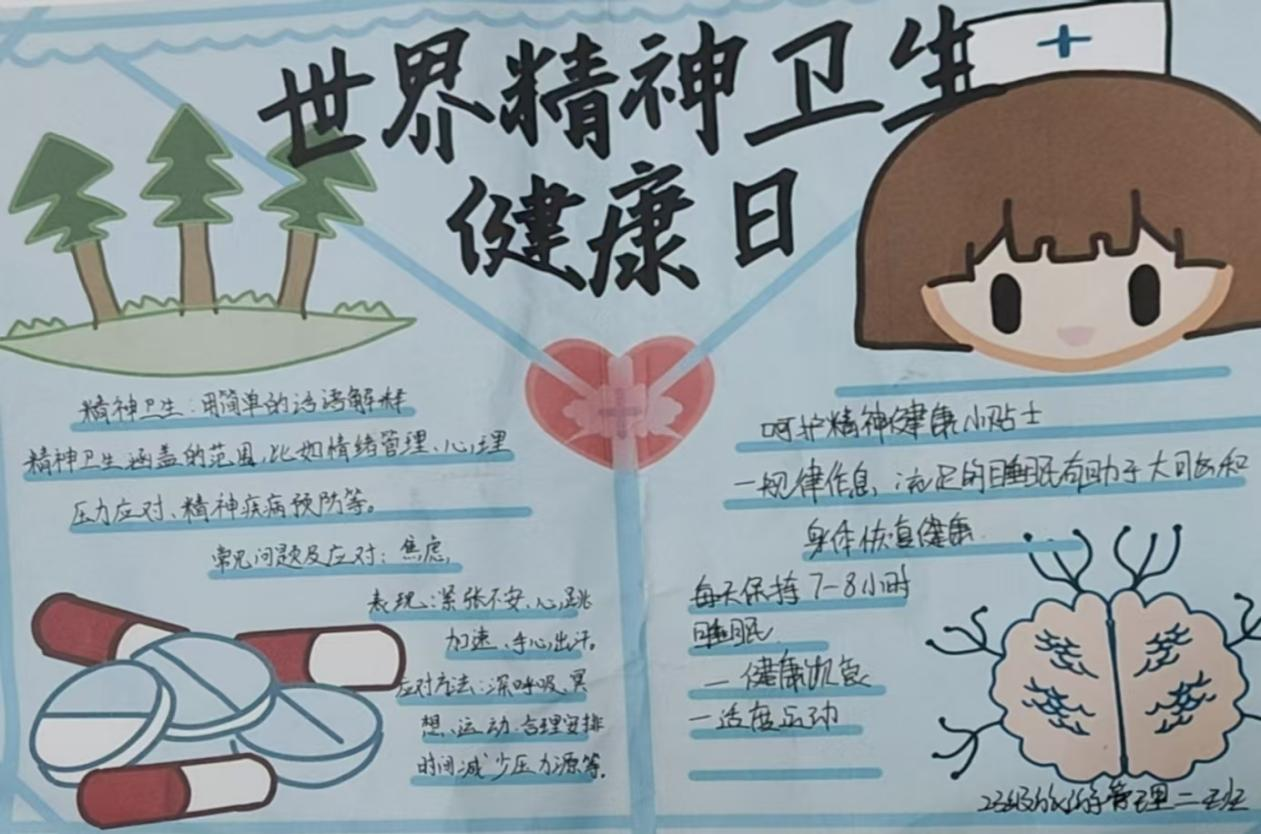 世界精神卫生
健康日
精神卫生:用简单的话语解释
精神卫生涵盖的范围,比如情绪管理、心理
压力应对、精神疾病预防等。
常见问题及应对:焦虑,
表现:紧张不安、心跳
加速、手心出汗。
应对方法:深呼吸、冥
想、运动、合理安排
时间减少压力源等。
呵护精神健康小贴士
一规律作息,充足的睡眠有助于大脑和
身体恢复健康
每天保持7-8小时
睡眠.
一健康饮食
一适度运动
23级 管理二班